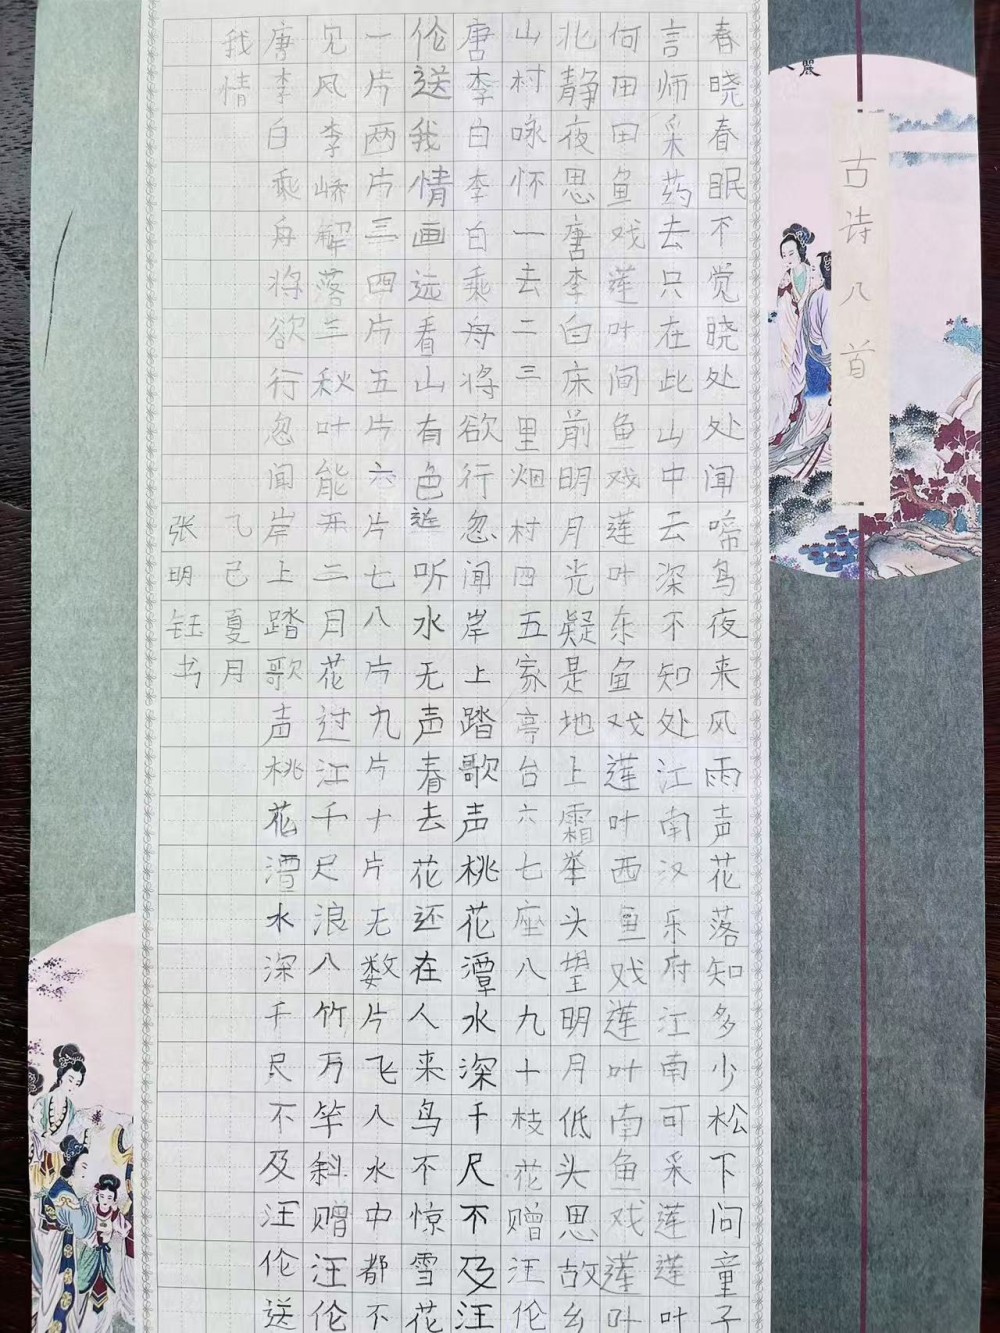 古诗八首
春晓春眠不觉晓处处闻啼鸟夜来风雨声花落知多少松下问童子
言师采药去只在此山中云深不知处江南汉乐府江南可采莲莲叶
何田田鱼戏莲叶间鱼戏莲叶东鱼戏莲叶西鱼戏莲叶南鱼戏莲叶
北静夜思唐李白床前明月光疑是地上霜举头望明月低头思故乡
山村咏怀一去二三里烟村四五家亭台六七座八九十枝花赠汪伦
唐李白李白乘舟将欲行忽闻岸上踏歌声桃花潭水深千尺不及汪
伦送我情画远看山有色近听水无声春去花还在人来鸟不惊雪花
一片两片三四片五片六片七八片九片十片无数片飞入水中都不
见风李峤解落三秋叶能开二月花过江千尺浪入竹万竿斜赠汪伦
唐李白乘舟将欲行忽闻岸上踏歌声桃花潭水深千尺不及汪伦送
我情 乙巳夏月
张明钰书